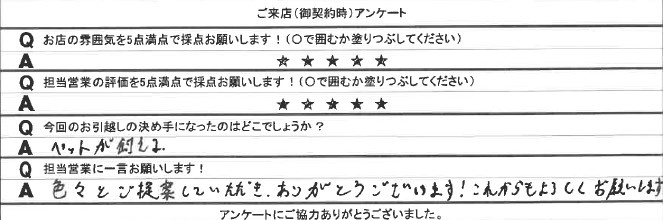 ご来店(御契約時)アンケート
Q お店の雰囲気を5点満点で採点お願いします!(〇で囲むか塗りつぶしてください)
A ★ ★ ★ ★ ★
Q 担当営業の評価を5点満点で採点お願いします!(〇で囲むか塗りつぶしてください)
A ★ ★ ★ ★ ★
Q 今回のお引越しの決め手になったのはどこでしょうか?
A ペットが飼える。
Q 担当営業に一言お願いします!
A 色々とご提案していただき、ありがとうございます!これからもよろしくお願いします
アンケートにご協力ありがとうございました。